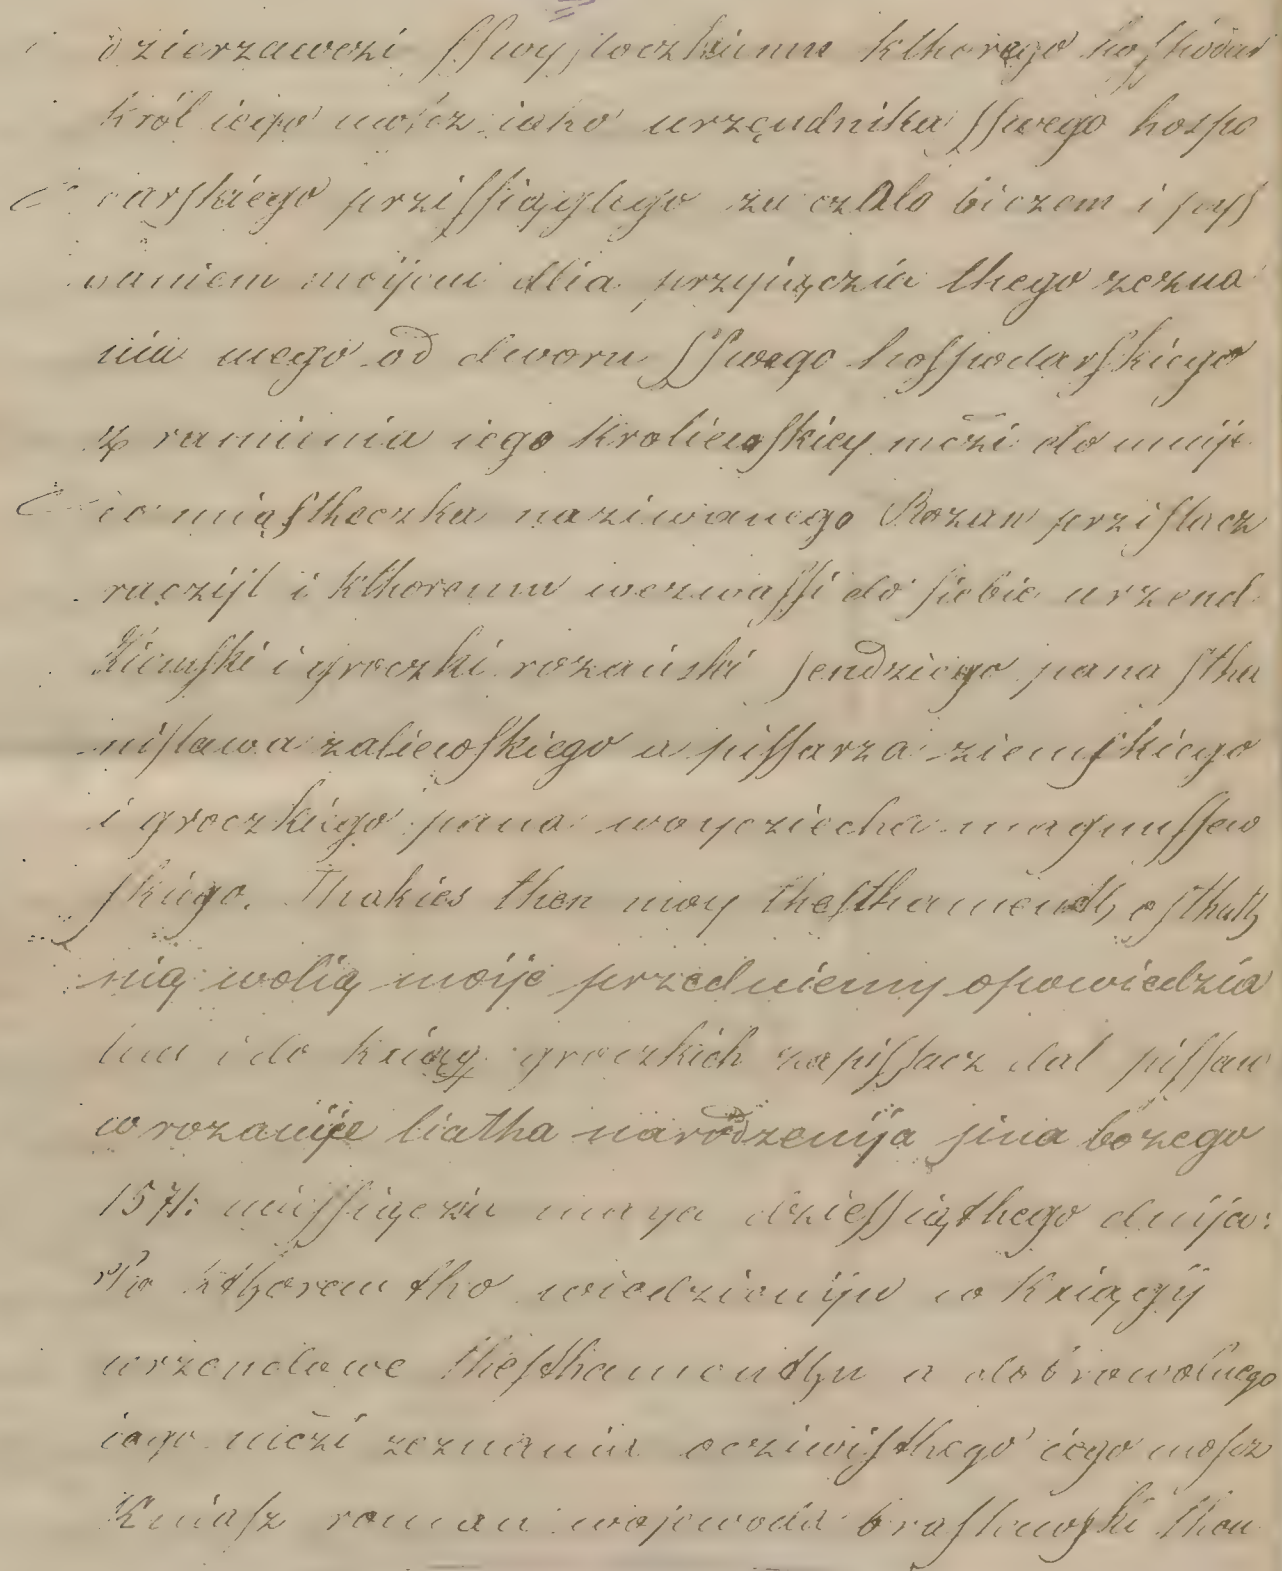 dzierzawczi sswysloczkiemu kthorego hoshodar
król iego mośćz iako urzęndnika sswego hospo
darskiego przissiąglego za czalo biczem i pos
vaniem moijem dlia przyięczia thego zezna
nia mego od dworu sswego hosspodarskiego
z ramienia iego Kroliewskiey mczi do mnije
do miąstheczka naziwanego Rozan przislacz
raczijl i kthoremu wezwassi do siebie urzend
Ziemski i groczki rozański sendziego pana stha
nislawa zaliewskiego a pissarza ziemskiego
i groczkiego pana woycziecha magnussew
skiego. Thakies then moy thesthamenth osthath
nią wolią moije przedniemy opowiedzia
lem i do kniąg groczkich zapissacz dal pissan
w rozanije liatha narodzenija sina bożego
1571: miessięcza maya dziessiąthego dnija:
Po kthorem tho wiedzienijv w Kniągij
urzendowe thesthamenthu a dobrowolnego
iego miczi zeznania oczivisthego iego moscz
Kniasz roman wojewoda braslawski then